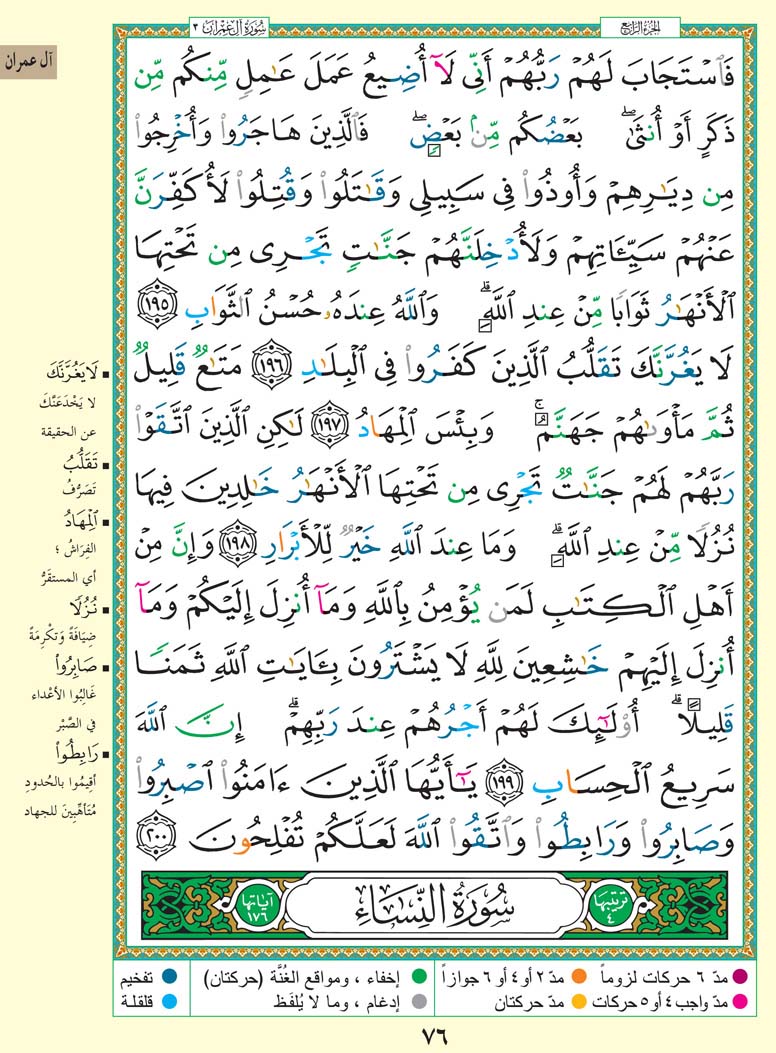 سُورَةُ آلِ عِمْرَان ٣
الجُزْءُ الرَّابِعُ
آل عمران
فَٱسْتَجَابَ لَهُمْ رَبُّهُمْ أَنِّى لَآ أُضِيعُ عَمَلَ عَٰمِلٍ مِّنكُم مِّن
ذَكَرٍ أَوْ أُنثَىٰ ۖ بَعْضُكُم مِّنۢ بَعْضٍ ۖ فَٱلَّذِينَ هَاجَرُوا۟ وَأُخْرِجُوا۟
مِن دِيَٰرِهِمْ وَأُوذُوا۟ فِى سَبِيلِى وَقَٰتَلُوا۟ وَقُتِلُوا۟ لَأُكَفِّرَنَّ
عَنْهُمْ سَيِّـَٔاتِهِمْ وَلَأُدْخِلَنَّهُمْ جَنَّٰتٍ تَجْرِى مِن تَحْتِهَا
ٱلْأَنْهَٰرُ ثَوَابًا مِّنْ عِندِ ٱللَّهِ ۗ وَٱللَّهُ عِندَهُۥ حُسْنُ ٱلثَّوَابِ ١٩٥
لَا يَغُرَّنَّكَ تَقَلُّبُ ٱلَّذِينَ كَفَرُوا۟ فِى ٱلْبِلَٰدِ ١٩٦ مَتَٰعٌ قَلِيلٌ
ثُمَّ مَأْوَىٰهُمْ جَهَنَّمُ ۚ وَبِئْسَ ٱلْمِهَادُ ١٩٧ لَٰكِنِ ٱلَّذِينَ ٱتَّقَوْا۟
رَبَّهُمْ لَهُمْ جَنَّٰتٌ تَجْرِى مِن تَحْتِهَا ٱلْأَنْهَٰرُ خَٰلِدِينَ فِيهَا
نُزُلًا مِّنْ عِندِ ٱللَّهِ ۗ وَمَا عِندَ ٱللَّهِ خَيْرٌ لِّلْأَبْرَارِ ١٩٨ وَإِنَّ مِنْ
أَهْلِ ٱلْكِتَٰبِ لَمَن يُؤْمِنُ بِٱللَّهِ وَمَآ أُنزِلَ إِلَيْكُمْ وَمَآ
أُنزِلَ إِلَيْهِمْ خَٰشِعِينَ لِلَّهِ لَا يَشْتَرُونَ بِـَٔايَٰتِ ٱللَّهِ ثَمَنًا
قَلِيلًا ۗ أُو۟لَٰٓئِكَ لَهُمْ أَجْرُهُمْ عِندَ رَبِّهِمْ ۗ إِنَّ ٱللَّهَ
سَرِيعُ ٱلْحِسَابِ ١٩٩ يَٰٓأَيُّهَا ٱلَّذِينَ ءَامَنُوا۟ ٱصْبِرُوا۟
وَصَابِرُوا۟ وَرَابِطُوا۟ وَٱتَّقُوا۟ ٱللَّهَ لَعَلَّكُمْ تُفْلِحُونَ ٢٠٠
ترتيبها ٤
سُورَةُ النِّسَاءِ
آياتها ١٧٦
لَا يَغُرَّنَّكَ
لا يَخْدَعَنَّكَ
عن الحقيقة
تَقَلُّبُ
تَصَرُّفُ
ٱلْمِهَادُ
الفِرَاشُ ؛
أي المستقَرُّ
نُزُلًا
ضِيَافَةً وَتَكْرِمَةً
صَابِرُوا۟
غَالِبُوا الأعْداء
في الصَّبْر
رَابِطُوا۟
أقيمُوا بالحُدودِ
مُتَأهِّبِينَ للجهاد
مدّ ٦ حركات لزوماً
مدّ ٢ أو ٤ أو ٦ جوازاً
إخفاء ، ومواقع الغُنَّة (حركتان)
تفخيم
مدّ واجب ٤ أو ٥ حركات
مدّ حركتان
إدغام ، وما لا يُلفَظ
قلقلـة
٧٦